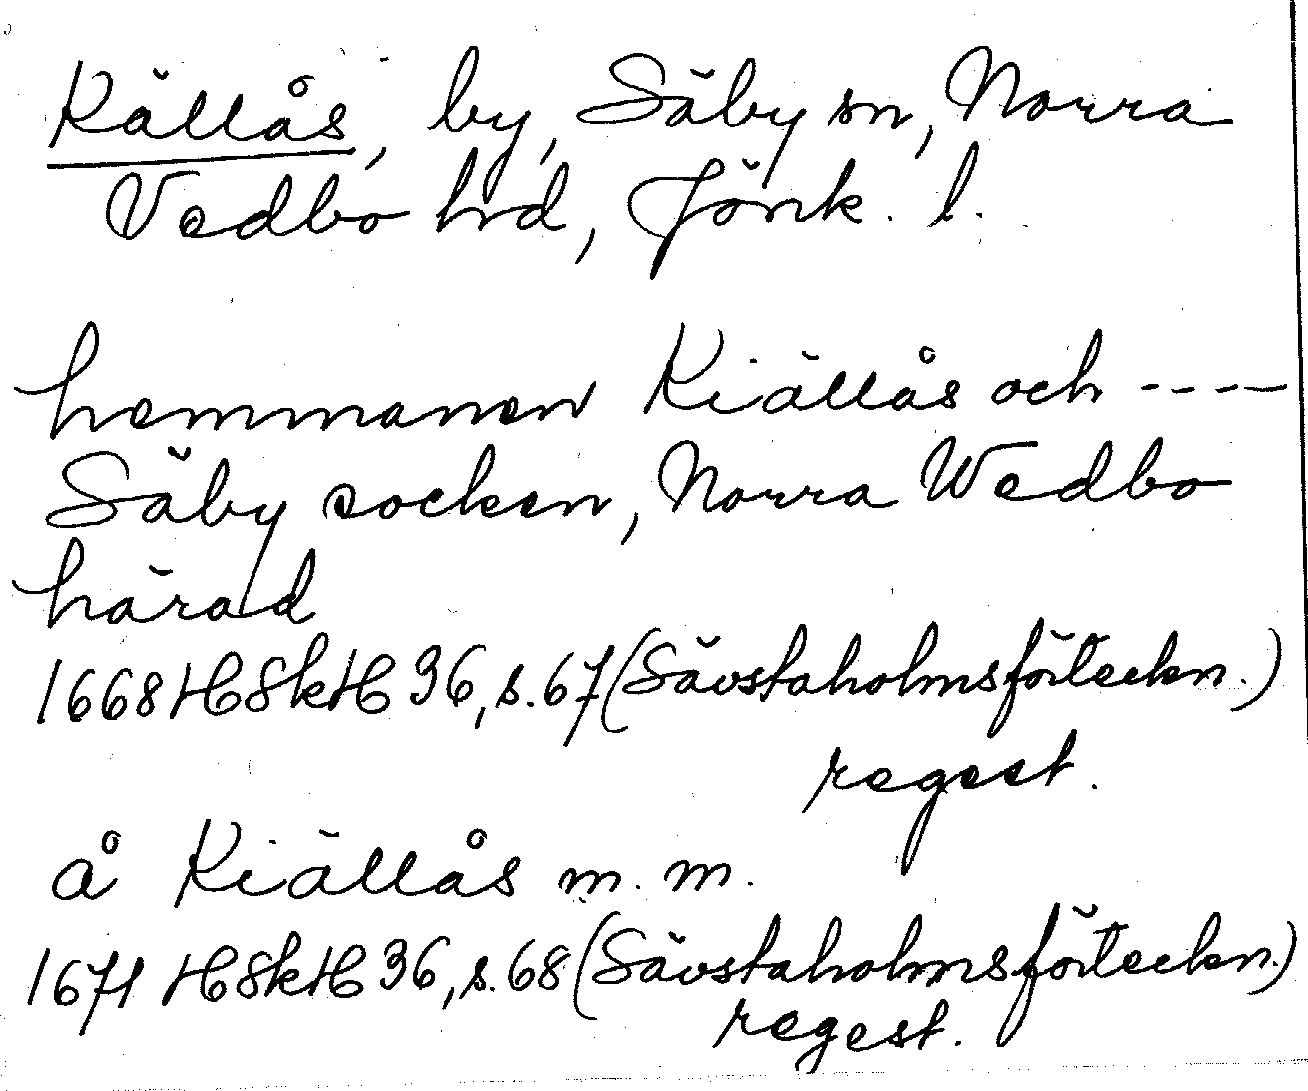 Källås, by, Säby sn, Norra
Vedbo hrd, Jönk. l.
hemmanen Kiällås och ----
Säby socken, Norra Wedbo
härad
1668 HSkH 36, s. 67 (Sävstaholmsförteckn.)
regest.
å Kiällås m. m.
1671 HSkH 36, s. 68 (Sävstaholmsförteckn.)
regest.